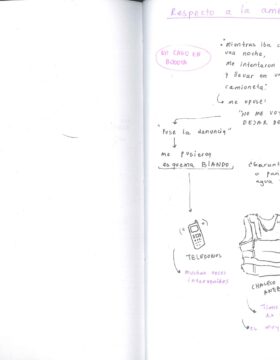 Respecto a la am
UN CASO EN
BOGOTÁ
"mientras iba c
una noche,
me intentaron
y llevar en u
camioneta"
me opuse!
"NO ME VO
DEJAR DE
"Puse la denuncia"
me pusieron
esquema BLANDO
o pan
agua
TELÉFONOS
muchas veces
interquidos
CHALECO
ANTI